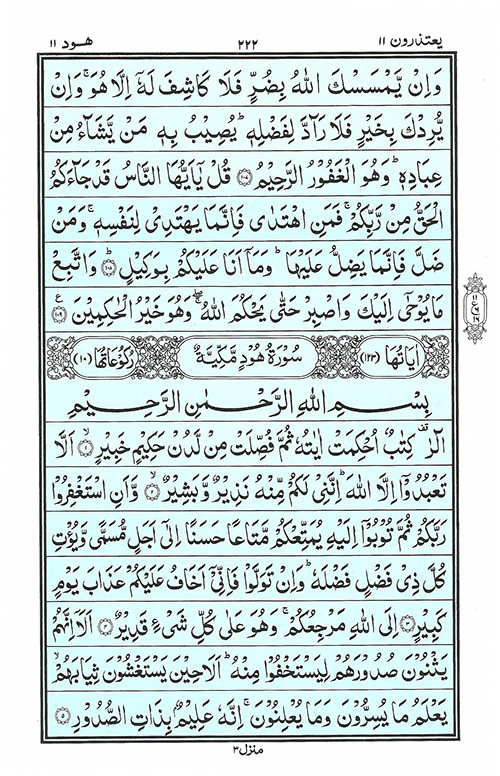 يعتذرون ١١ ٢٢٢ هود ١١
وَاِنْ يَّمْسَسْكَ اللّٰهُ بِضُرٍّ فَلَا كَاشِفَ لَهٗٓ اِلَّا هُوَ ۚ وَاِنْ
يُّرِدْكَ بِخَيْرٍ فَلَا رَآدَّ لِفَضْلِهٖ ؕ يُصِيْبُ بِهٖ مَنْ يَّشَآءُ مِنْ
عِبَادِهٖ ؕ وَهُوَ الْغَفُوْرُ الرَّحِيْمُ ﴿١٠٧﴾ قُلْ يٰٓاَيُّهَا النَّاسُ قَدْ جَآءَكُمُ
الْحَقُّ مِنْ رَّبِّكُمْ ۚ فَمَنِ اهْتَدٰى فَاِنَّمَا يَهْتَدِىْ لِنَفْسِهٖ ۚ وَمَنْ
ضَلَّ فَاِنَّمَا يَضِلُّ عَلَيْهَا ؕ وَمَآ اَنَا عَلَيْكُمْ بِوَكِيْلٍ ﴿١٠٨﴾ؕ وَاتَّبِعْ
مَا يُوْحٰٓى اِلَيْكَ وَاصْبِرْ حَتّٰى يَحْكُمَ اللّٰهُ ۖۚ وَهُوَ خَيْرُ الْحٰكِمِيْنَ ﴿١٠٩﴾ ع
اٰيَاتُهَا (١٢٣) سُوْرَةُ هُوْدٍ مَّكِّيَّةٌ رُكُوْعَاتُهَا (١٠)
بِسْمِ اللّٰهِ الرَّحْمٰنِ الرَّحِيْمِ
الٓرٰ ۚ كِتٰبٌ اُحْكِمَتْ اٰيٰتُهٗ ثُمَّ فُصِّلَتْ مِنْ لَّدُنْ حَكِيْمٍ خَبِيْرٍ ﴿١﴾ۙ اَلَّا
تَعْبُدُوْٓا اِلَّا اللّٰهَ ؕ اِنَّنِىْ لَكُمْ مِّنْهُ نَذِيْرٌ وَّبَشِيْرٌ ﴿٢﴾ۙ وَّاَنِ اسْتَغْفِرُوْا
رَبَّكُمْ ثُمَّ تُوْبُوْٓا اِلَيْهِ يُمَتِّعْكُمْ مَّتَاعًا حَسَنًا اِلٰٓى اَجَلٍ مُّسَمًّى وَّيُؤْتِ
كُلَّ ذِىْ فَضْلٍ فَضْلَهٗ ؕ وَاِنْ تَوَلَّوْا فَاِنِّىْٓ اَخَافُ عَلَيْكُمْ عَذَابَ يَوْمٍ
كَبِيْرٍ ﴿٣﴾ اِلَى اللّٰهِ مَرْجِعُكُمْ ۚ وَهُوَ عَلٰى كُلِّ شَىْءٍ قَدِيْرٌ ﴿٤﴾ اَلَآ اِنَّهُمْ
يَثْنُوْنَ صُدُوْرَهُمْ لِيَسْتَخْفُوْا مِنْهُ ؕ اَلَا حِيْنَ يَسْتَغْشُوْنَ ثِيَابَهُمْ ۙ
يَعْلَمُ مَا يُسِرُّوْنَ وَمَا يُعْلِنُوْنَ ۚ اِنَّهٗ عَلِيْمٌۢ بِذَاتِ الصُّدُوْرِ ﴿٥﴾
منزل ٣